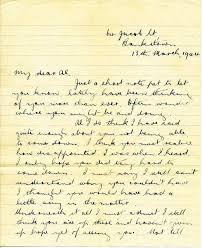 60 Jacob St.
Bankstown
13th March 1944
My dear Al,
Just a short note just to let
you know lately have been thinking
of you more than ever, often wonder
where you might be and
Al I do think I have said
quite enough about you not being able
to come down. I think you must realise
how disappointed I was when I heard
I only hope you did try hard to
come down. I must say I still can't
understand why you couldn't have
I thought you would have had a
little say in the matter
Underneath it all I must admit I still
think you are and haven't given
up hope yet of seeing you. that tell